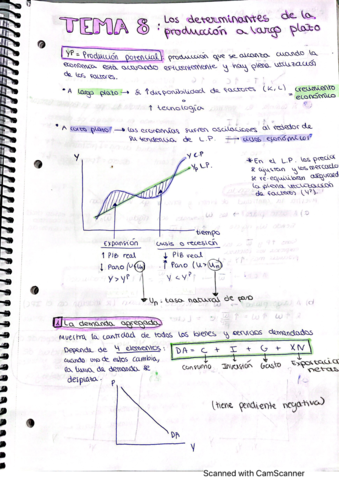 TEMA 8: Los determinantes de la
producción a largo plazo
YP = Producción potencial: producción que se alcanza cuando la
economía está actuando eficientemente y hay plena utilización
de los factores.
* A largo plazo → si ↑ disponibilidad de factores (K, L) crecimiento
económico
↑ tecnología
* A corto plazo → las economías sufren oscilaciones al rededor de
su tendencia de L.P. → ciclos económicos
Y
Y CP
Y LP
* En el L.P. los precios
se ajustan y los mercados
se reequilibran asegurando
la plena utilización
de factores (YP).
tiempo
EXPANSIÓN
↑ PIB real
↓ Paro (u<un)
Y > YP
CRISIS o RECESIÓN
↓ PIB real
↑ Paro (u>un)
Y < YP
un: tasa natural de paro
La demanda agregada
Muestra la cantidad de todos los bienes y servicios demandados
Depende de 4 elementos: DA = C + I + G + XN
cuando uno de estos cambia,
la curva de demanda se
desplaza.
Consumo Inversión Gasto Exportaciones
netas
P
DA
Y
(tiene pendiente negativa)
Scanned with CamScanner